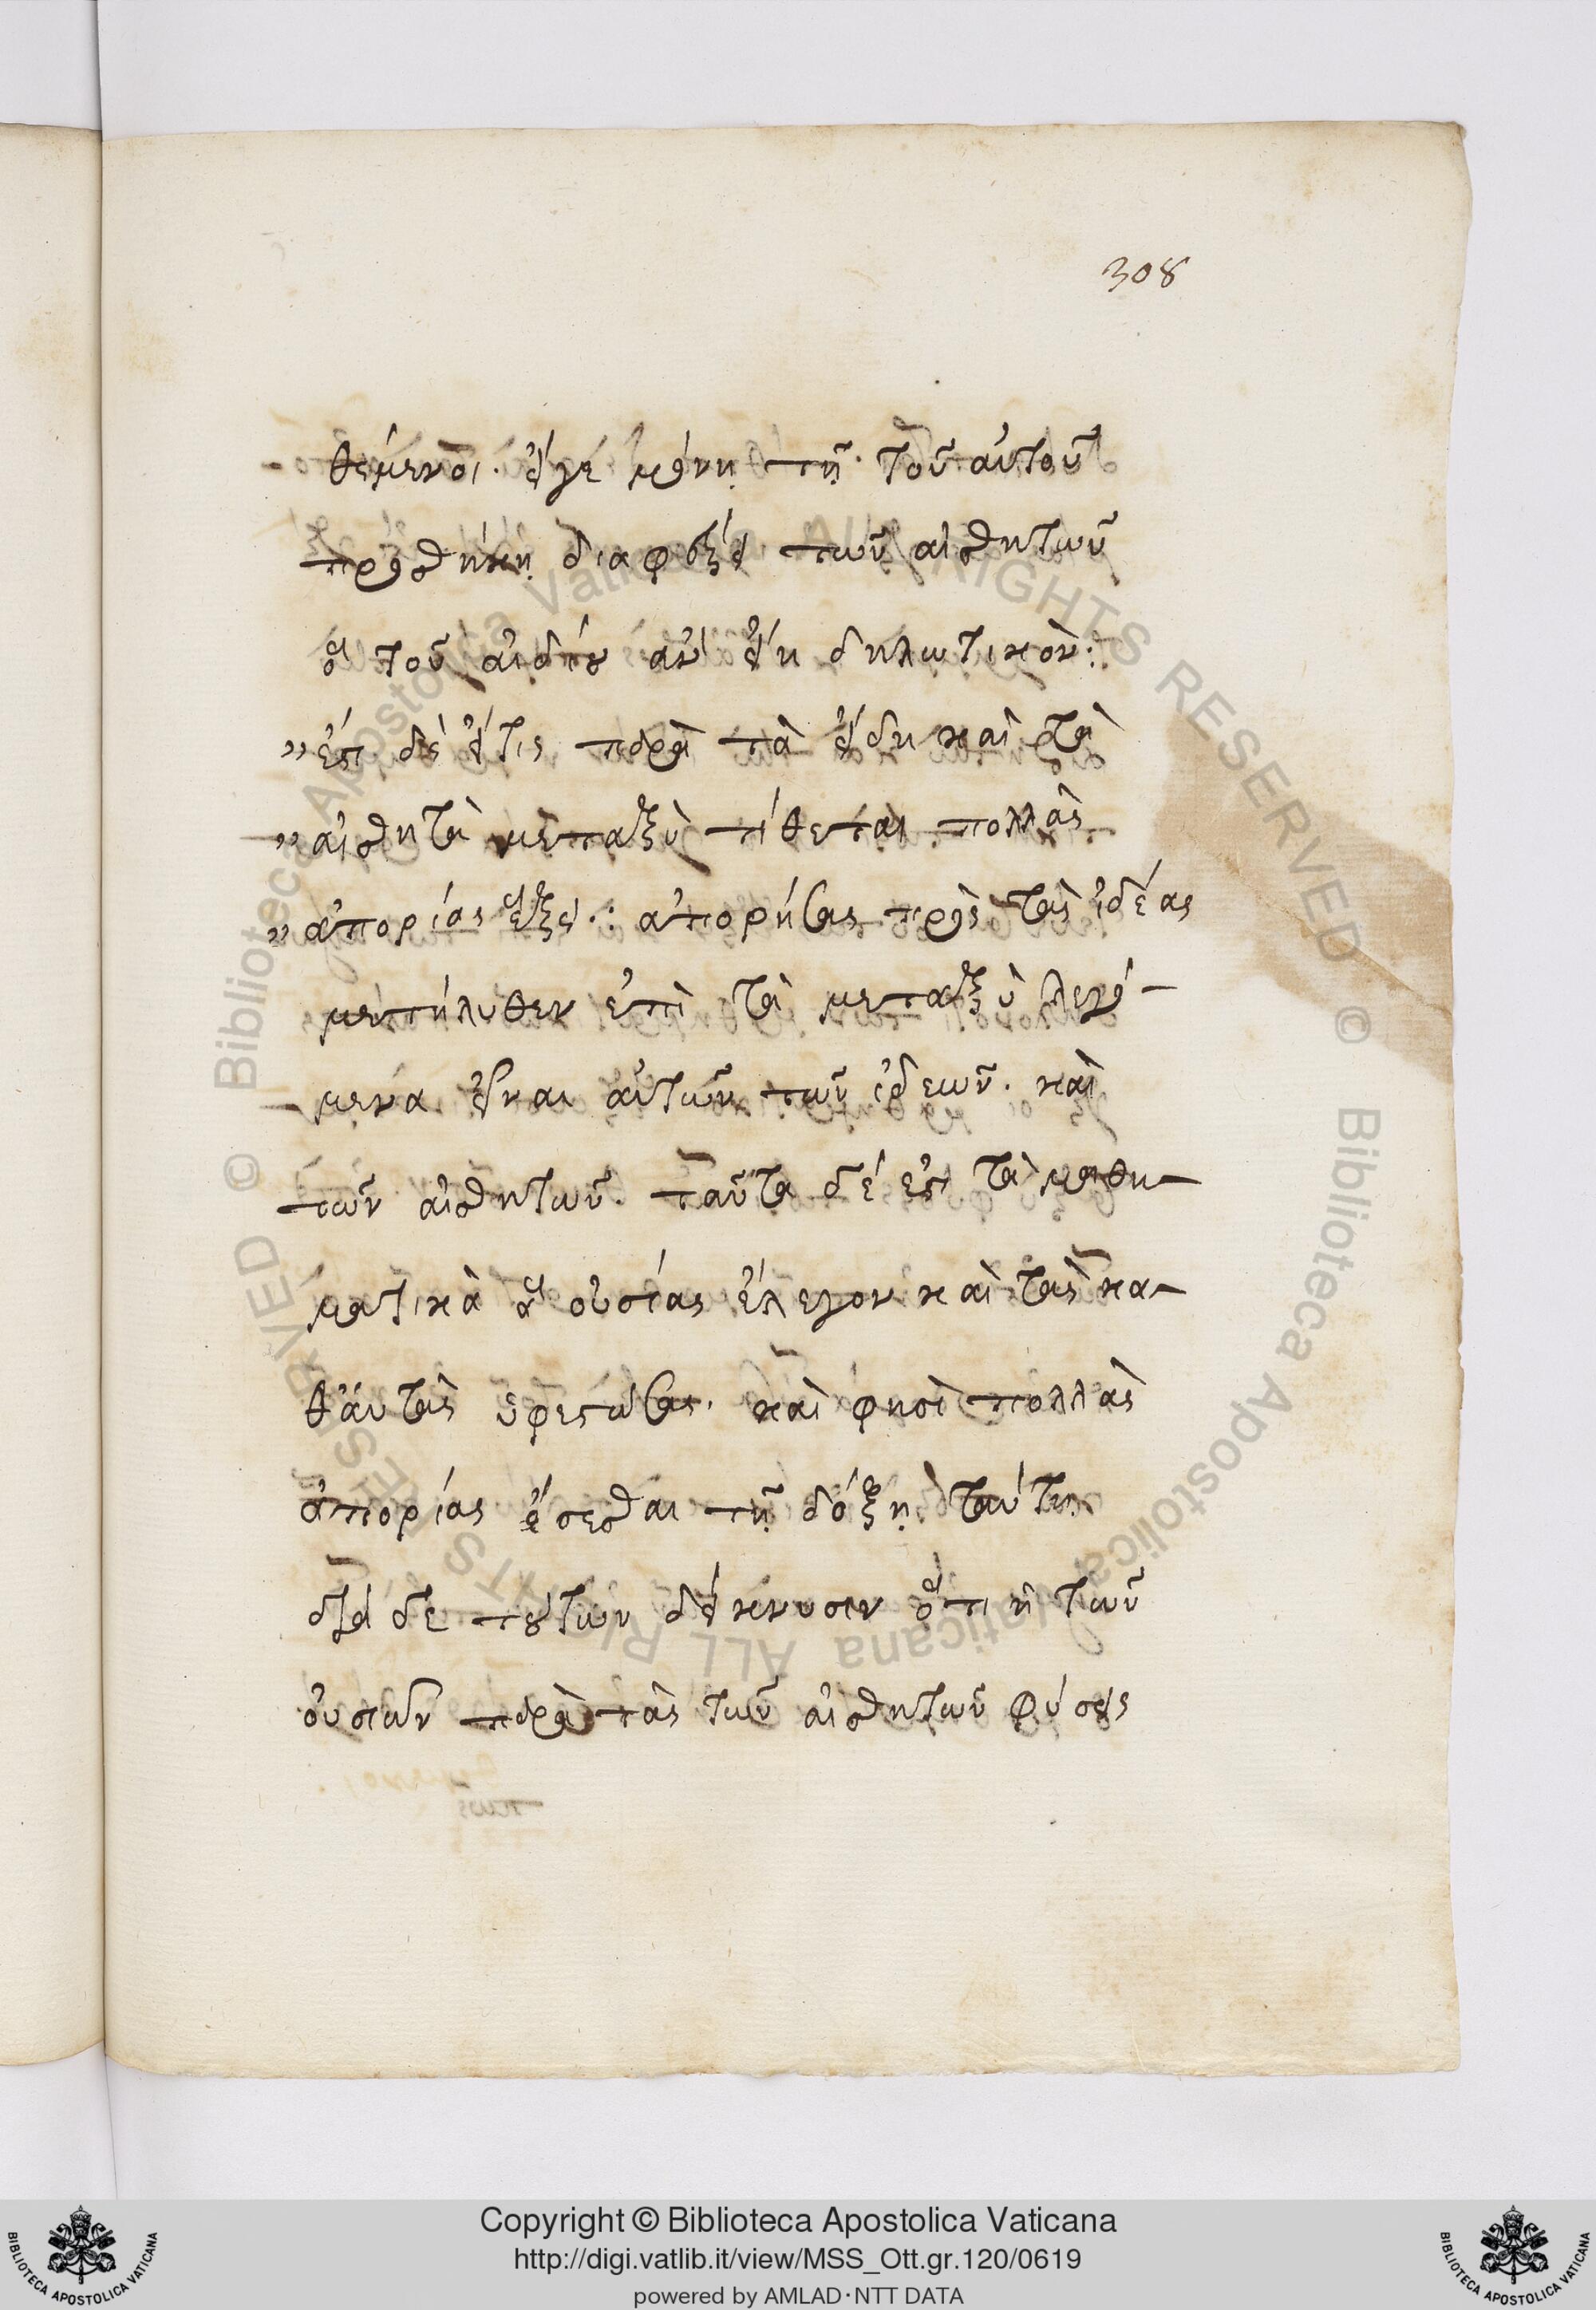 308
θέμενοι. εἴγε μόνη τῆ τοῦ αὐτοῦ
προσθήκη διαφέρει τῶν αἰσθητῶν
ὃ τοῦ ἀϊδίου ἂν εἴη δηλωτικόν:
„ἔτι δὲ εἴτις παρὰ τὰ εἴδη καὶ τὰ
„αἰσθητὰ μεταξὺ τίθεται πολλὰς
„ἀπορίας ἕξει: ἀπορήσας πρὸς τὰς ἰδέας
μετῆλυθεν ἐπὶ τὰ μεταξὺ λεγό-
μενα εἶναι αὐτῶν τῶν ἰδεῶν. καὶ
τῶν αἰσθητῶν. ταῦτα δέ ἐστι τὰ μαθη-
ματικὰ ἃ οὐσίας ἔλεγον καὶ τὰς κα-
θ᾽ αὑτὰς ὑφεστώσας. καὶ φησὶ πολλὰς
ἀπορίας ἕπεσθαι τῆ δόξη ταύτη.
διὰ δὲ τούτων δείκνυσιν ὅτι ἡ τῶν
οὐσιῶν παρὰ τὰς τῶν αἰσθητῶν φύσεις
Copyright © Biblioteca Apostolica Vaticana
http://digi.vatlib.it/view/MSS_Ott.gr.120/0619
powered by AMLAD·NTT DATA
BIBLIOTECA APOSTOLICA VATICANA
BIBLIOTECA APOSTOLICA VATICANA
© Biblioteca Apostolica Vaticana ALL RIGHTS RESERVED © Biblioteca Apostolica Vaticana ALL RIGHTS RESERVED